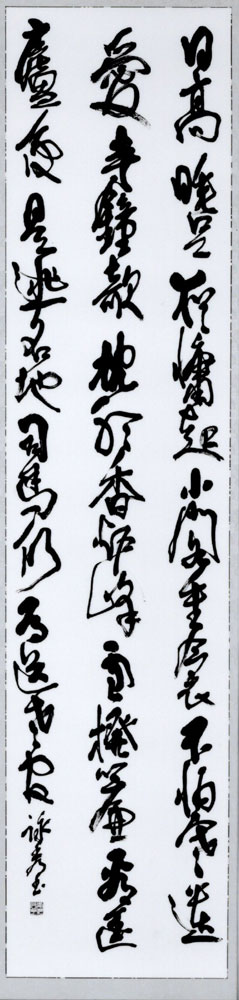 日高睡足猶慵起小閣重衾不怕寒遺
愛寺鐘欹枕聽香爐峰雪撥簾看匡
廬便是逃名地司馬仍為送老官